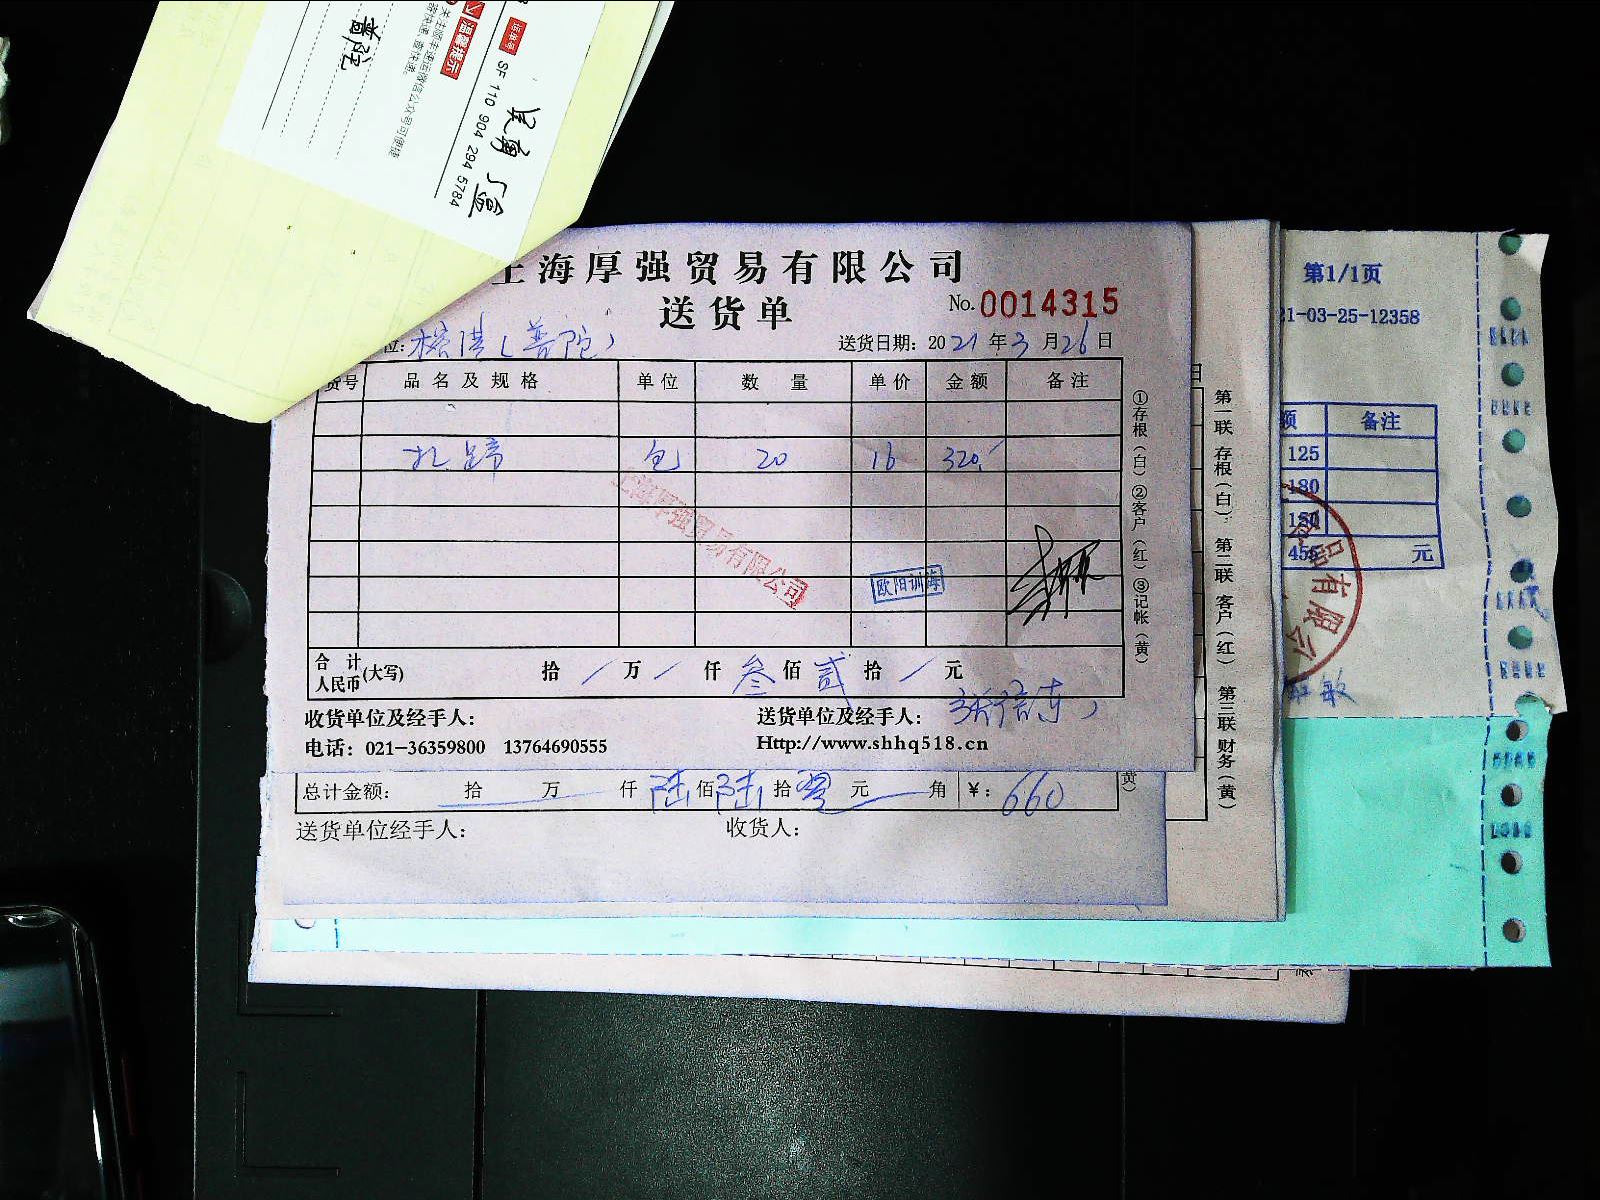 温馨提示
运单号
SF 110 904 294 5784
普陀
上海厚强贸易有限公司
送货单
No.0014315
位:榕港(普陀)
送货日期:2021年3月26日
货号 品名及规格 单位 数量 单价 金额 备注
扎蹄 包 20 16 320
上海厚强贸易有限公司
欧阳训海
合计人民币(大写) 拾/万/仟叁佰贰拾/元
收货单位及经手人:
送货单位及经手人:
电话:021-36359800 13764690555
Http://www.shhq518.cn
①存根(白)②客户(红)③记帐(黄)
总计金额: 拾 万 仟陆佰陆拾零元 角 ¥:660
送货单位经手人: 收货人:
黄)
日
第一联 存根(白) 第二联 客户(红) 第三联 财务(黄)
第1/1页
21-03-25-12358
额 备注
125
180
150
455 元
品有限公
敏